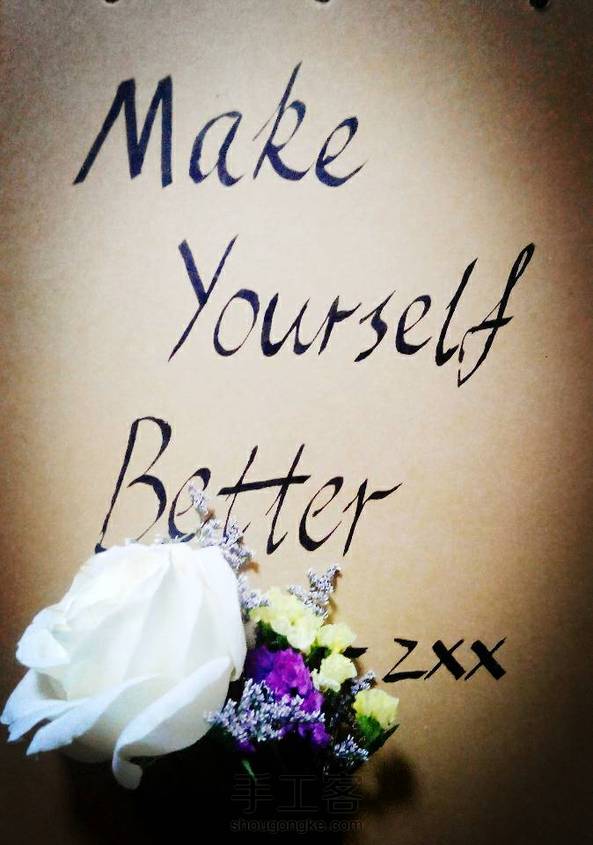 Make
Yourself
Better
- zxx
手工客
shougongke.com